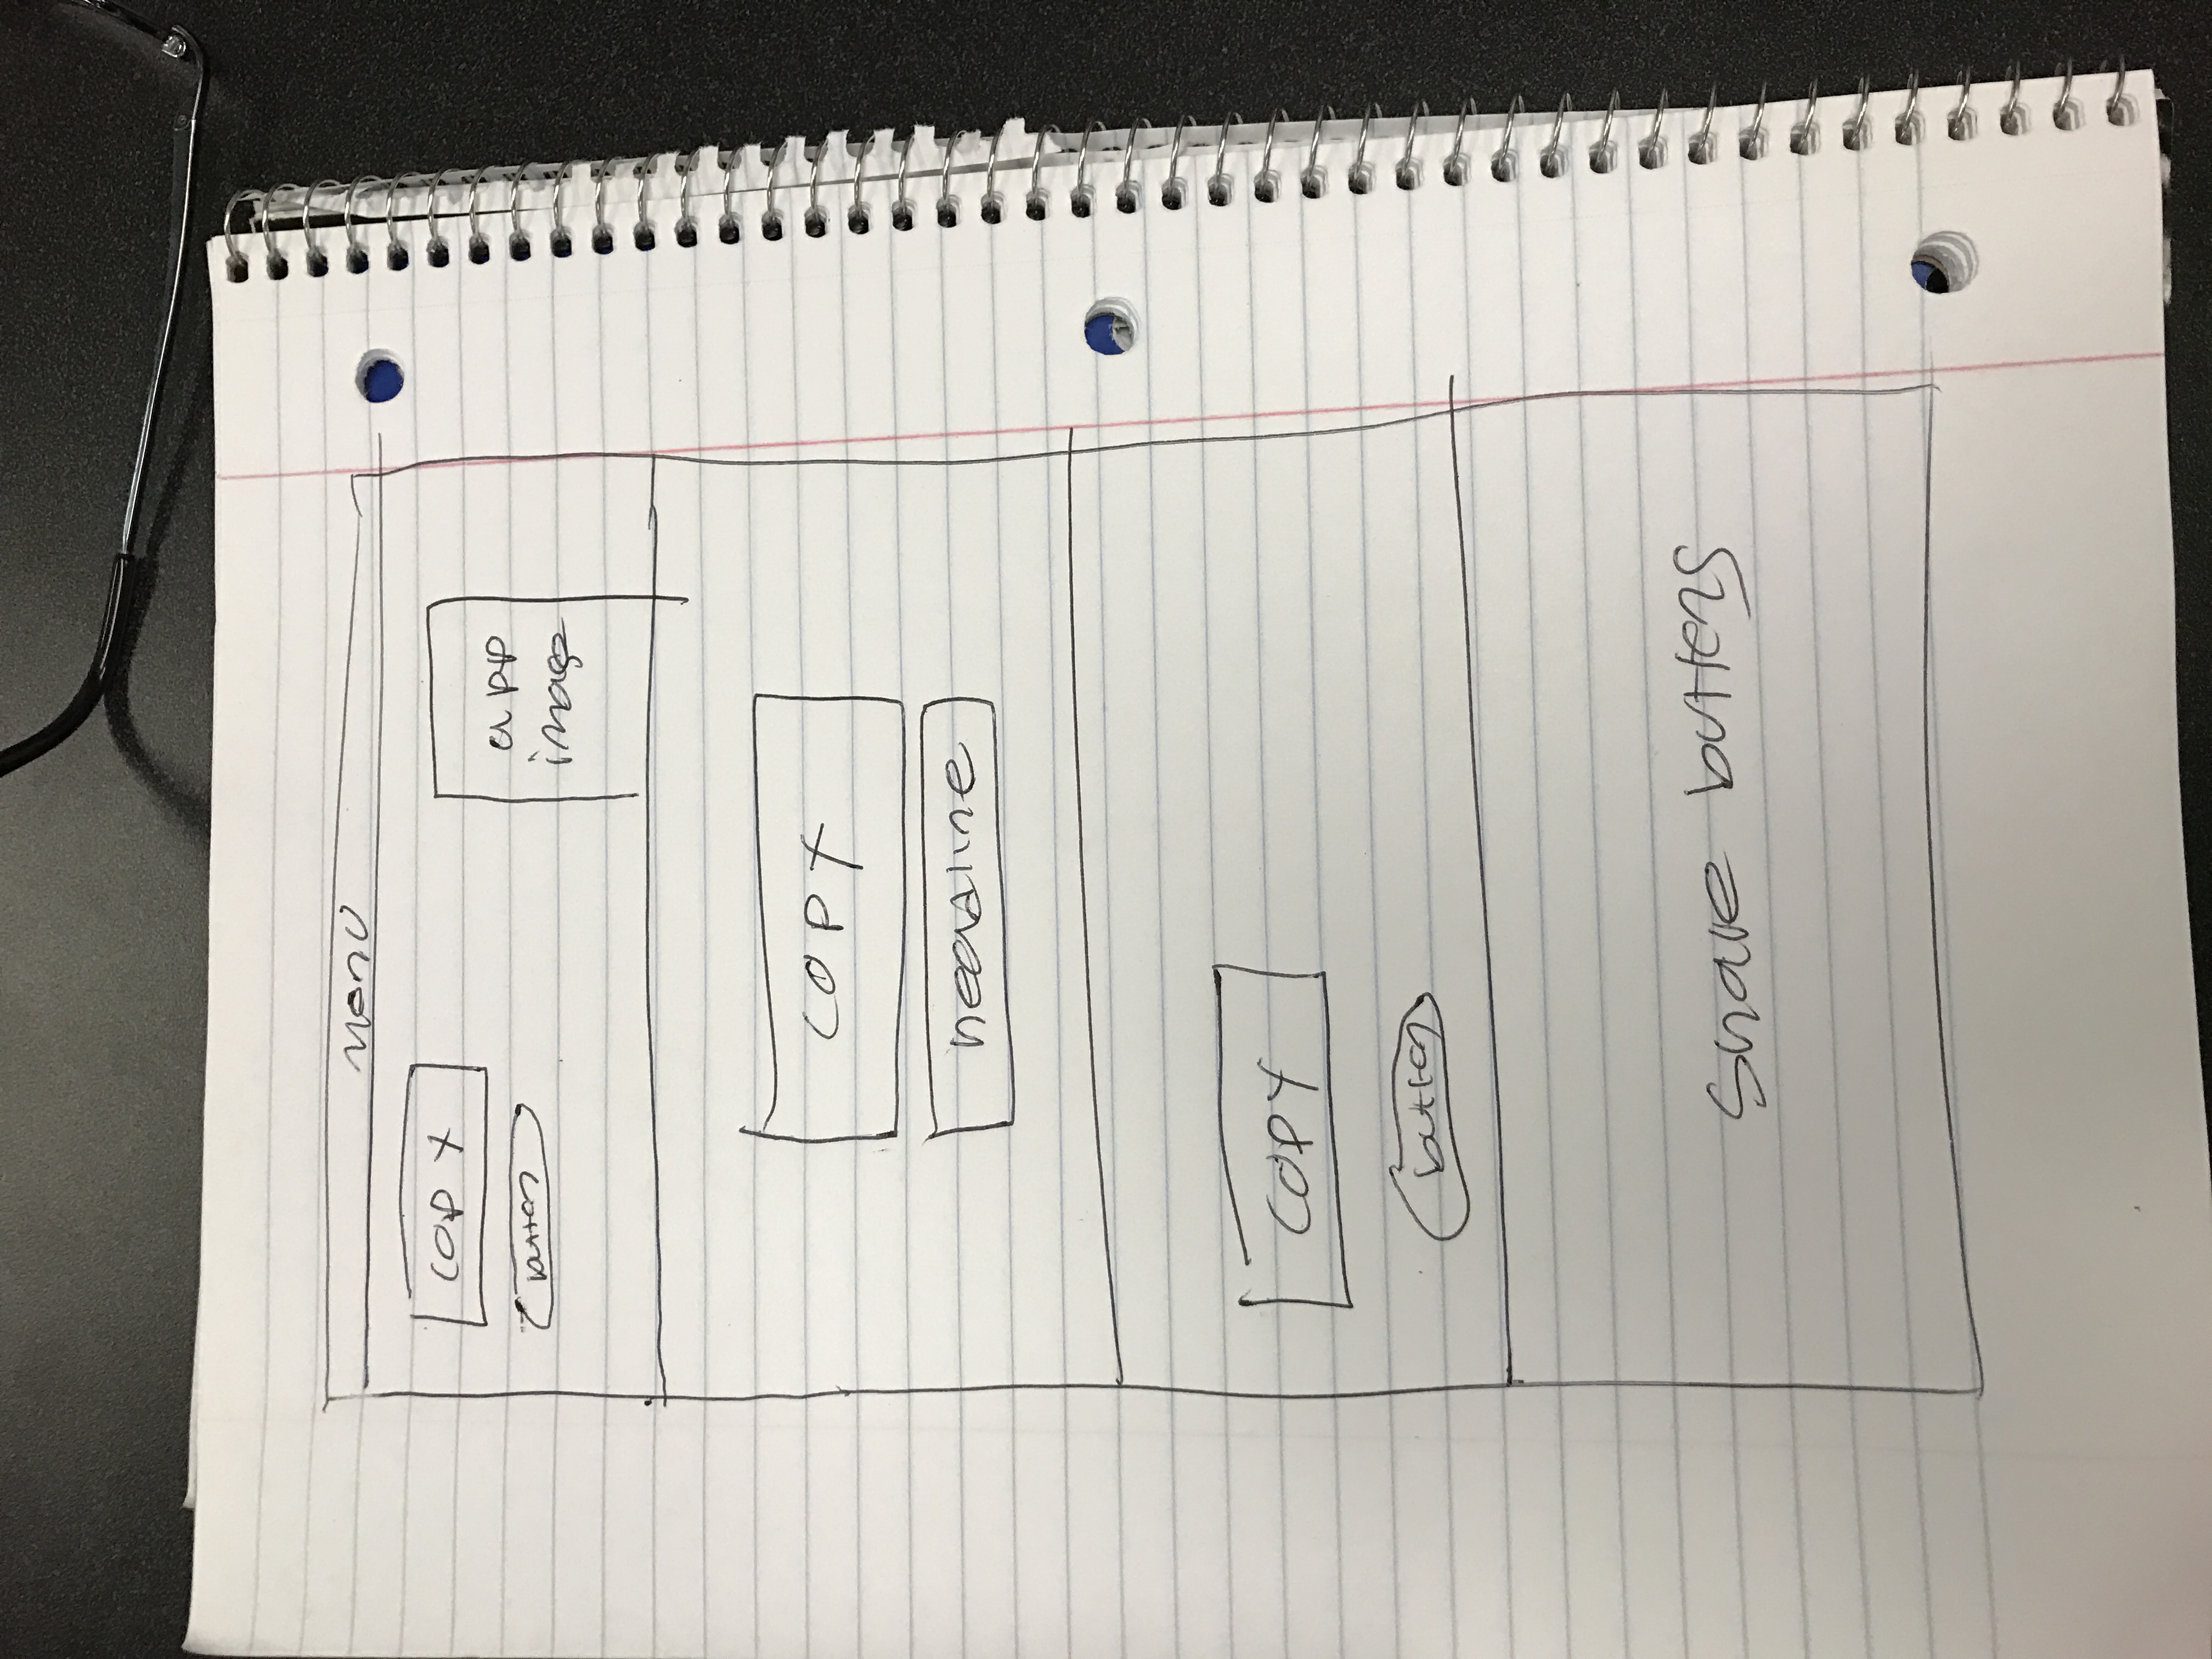 menu
copy
button
app
image
copy
headline
copy
button
share buttons